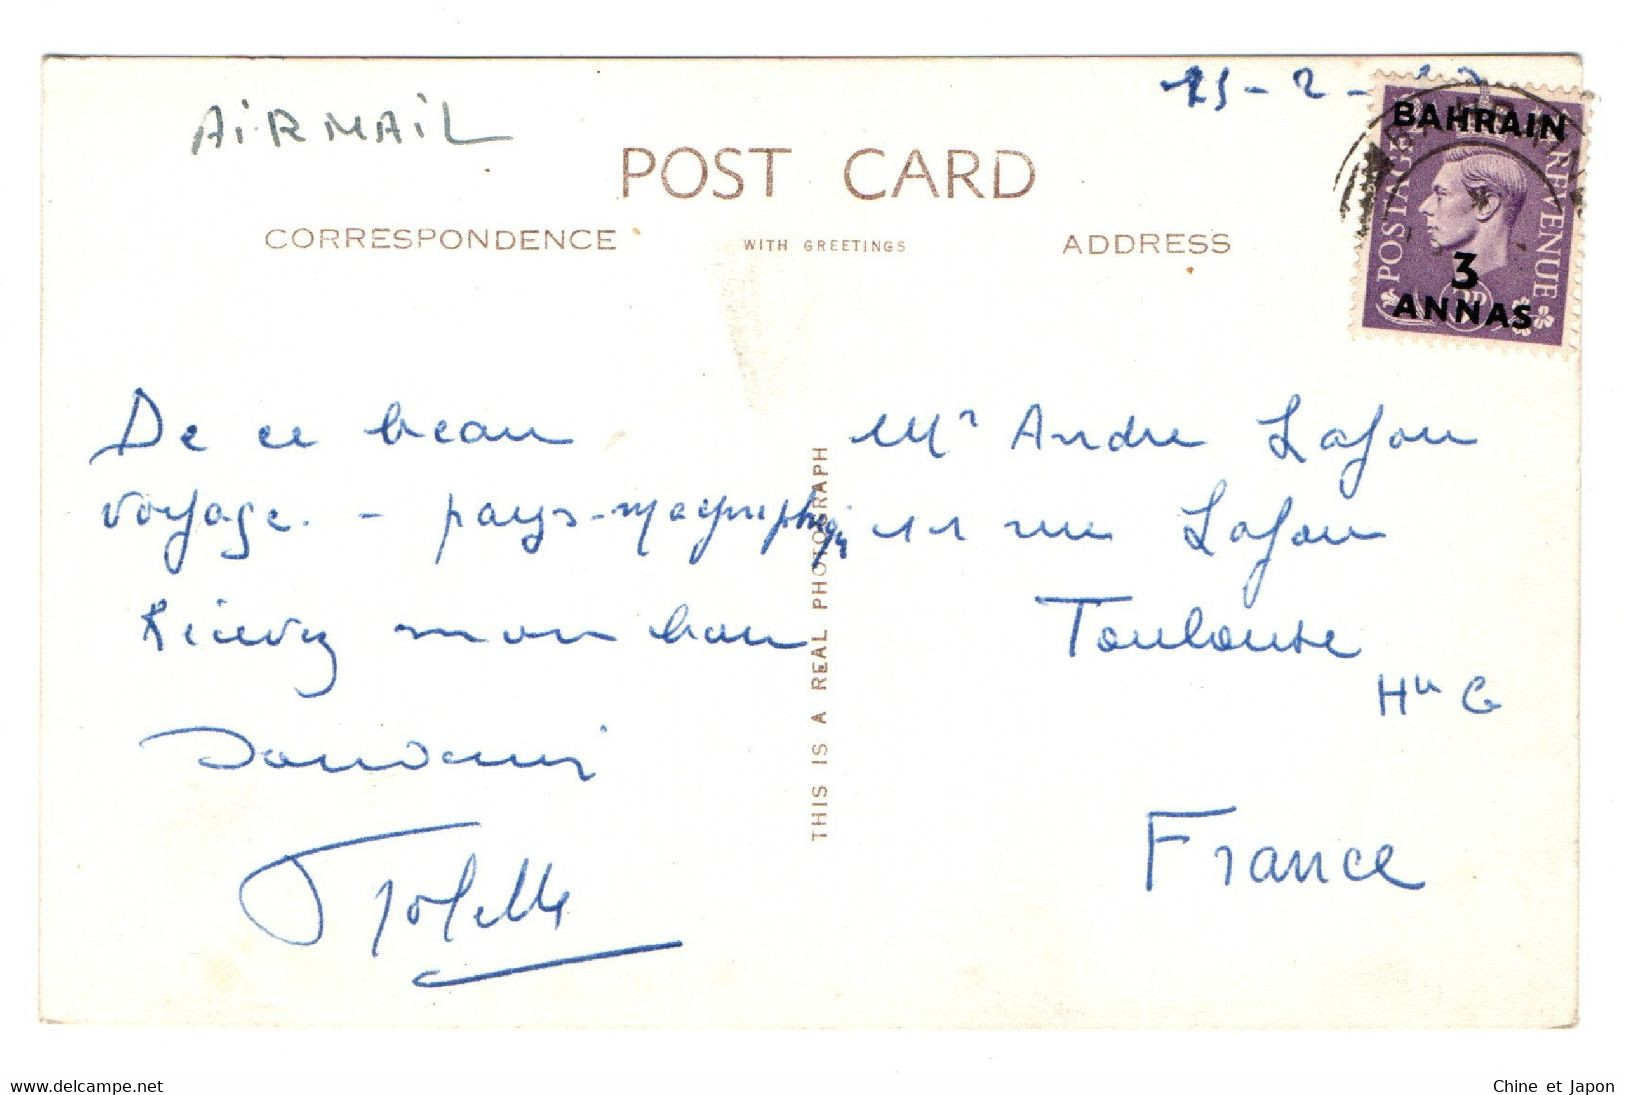 AiRMAiL
25-2-
POST CARD
CORRESPONDENCE
WITH GREETINGS
ADDRESS
BAHRAIN
POSTAGE
REVENUE
3
ANNAS
De ce beau
voyage. - pays-magnifique
Recevez mon bon
Souvenir
THIS IS A REAL PHOTOGRAPH
Mr Andre Lafon
11 rue Lafon
Toulouse
Hte G
France
www.delcampe.net
Chine et Japon